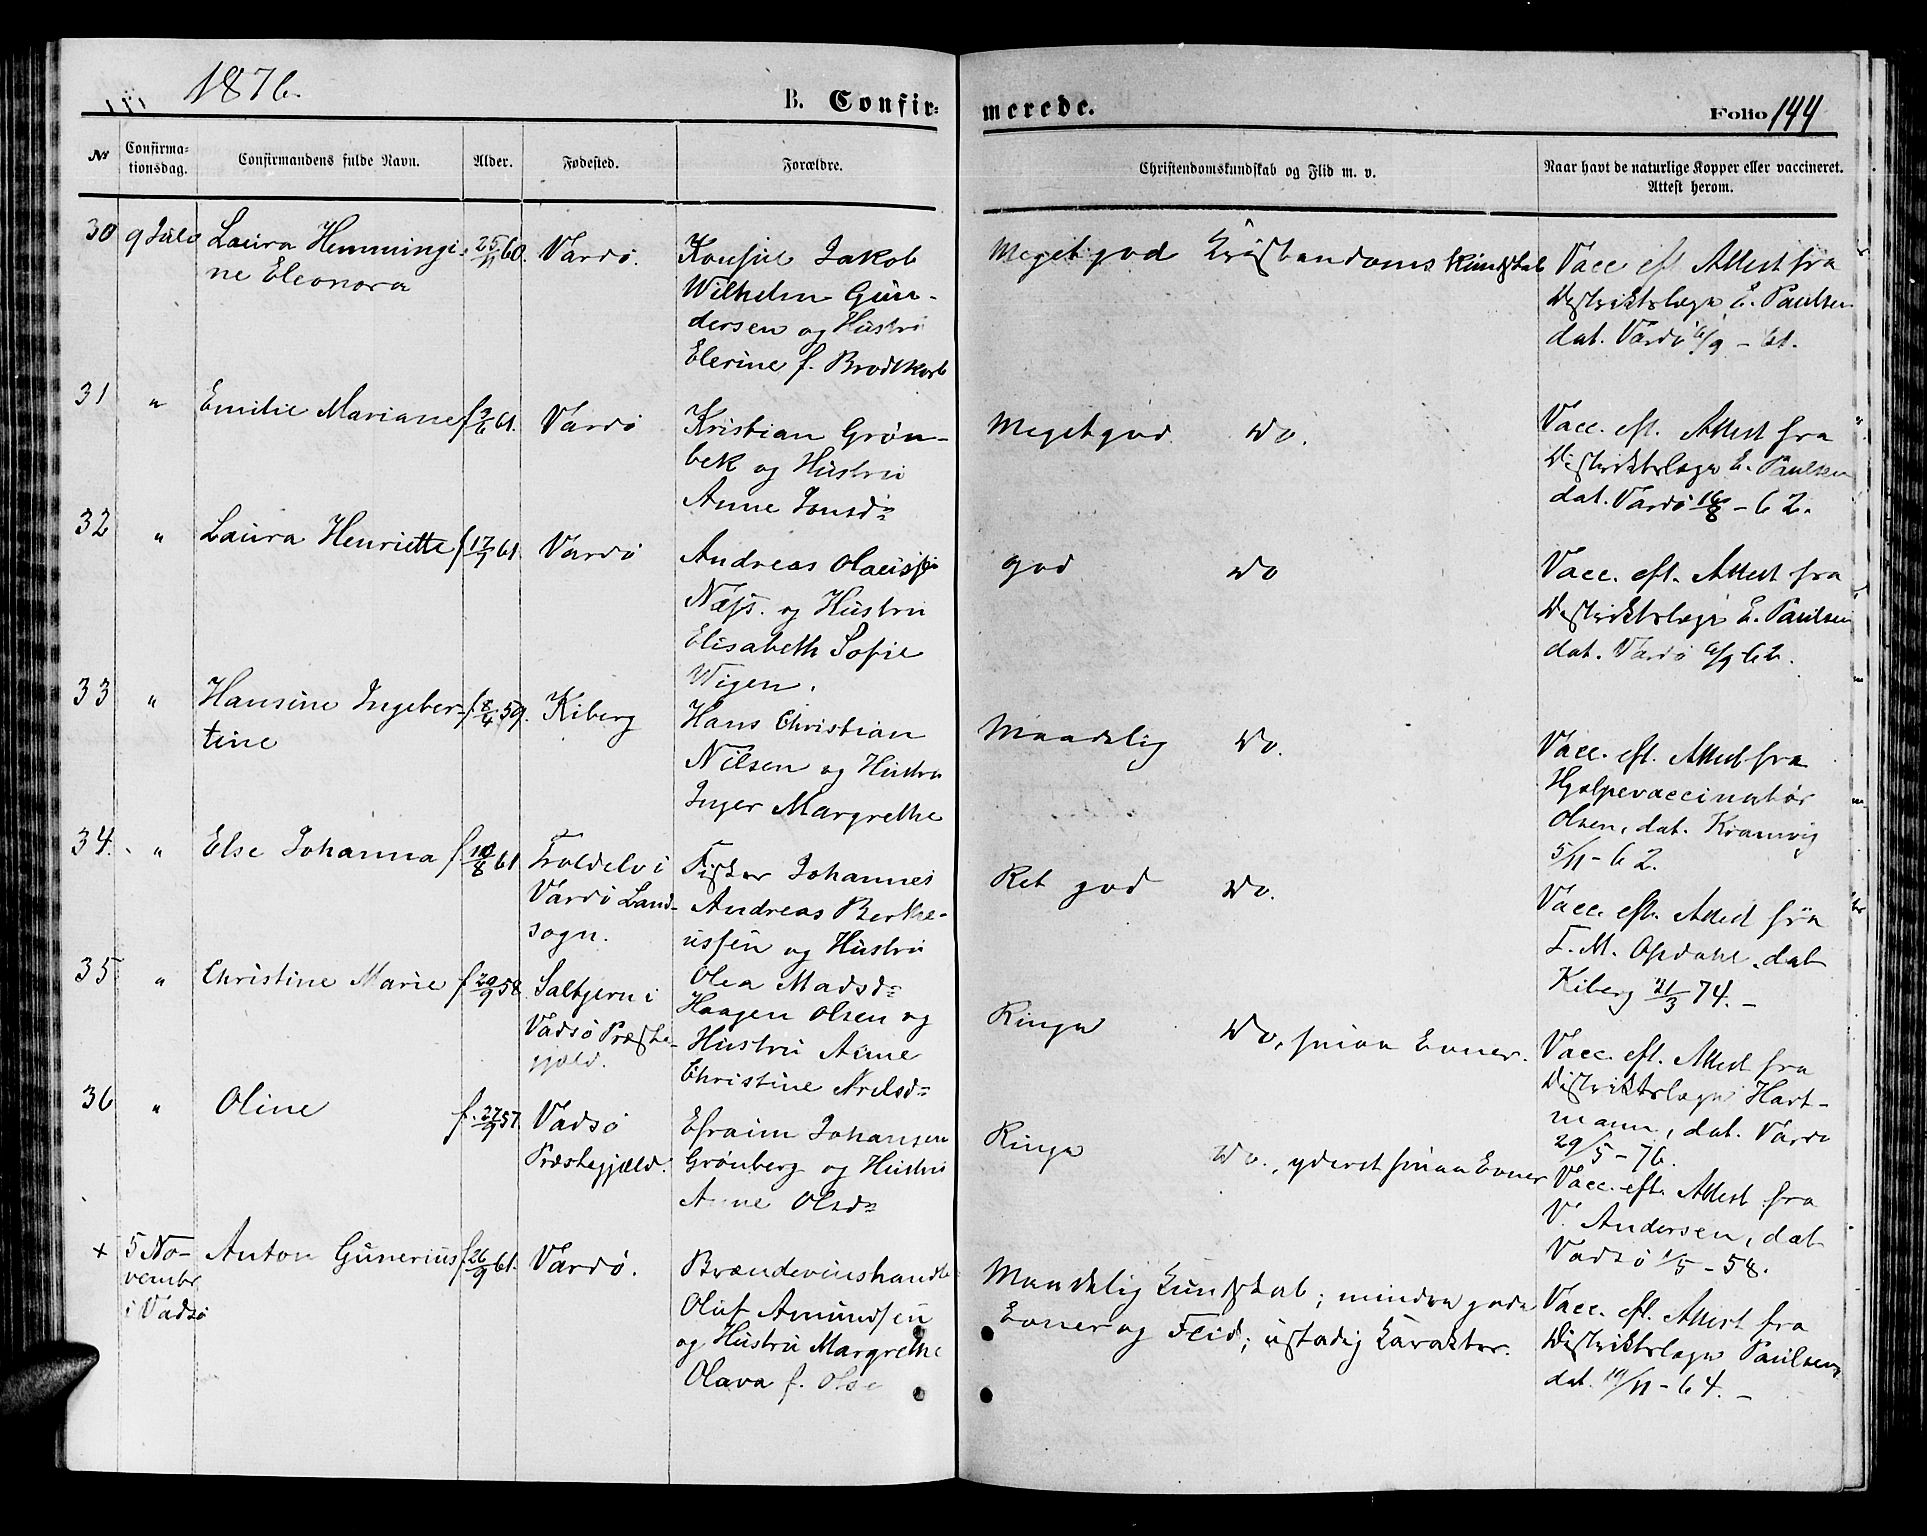 1876.
B. Confir-
merede.
Folio 144
No
Confirma-
tionsdag.
Confirmandens fulde Navn.
Alder.
Fødested.
Forældre.
Christendomskundskab og Flid m. v.
Naar havt de naturlige Kopper eller vaccineret.
Attest herom.
30 9 Juli Laura Hemmingi-
ne Eleonora
25/11 60.
Vardø.
Konsul Jakob
Wilhelm Gun-
dersen og Hustru
Elerine f. Brodtkorb
Meget god Kristendomskundskab
Vacc. eft. Attest fra
Distriktslæge E. Paulsen
dat. Vardø 6/9 - 61.
31 " Emilie Mariane f 9/6 61.
Vardø
Kristian Grøn-
bek og Hustru
Anne Jonsd.
Meget god Do.
Vacc. eft. Attest fra
Distriktslæge E. Paulsen
dat. Vardø 16/8 - 62.
32 " Laura Henriette f 17/9 61.
Vardø
Andreas Olaussen
Næss. og Hustru
Elisabeth Sofie
Wigen.
god Do
Vacc. eft. Attest fra
Distriktslæge E. Paulsen
dat. Vardø 6/9 62.
33 " Hansine Ingeber-
tine
f. 8/4 59.
Kiberg
Hans Christian
Nilsen og Hustru
Inger Margrethe
Maadelig Do.
Vacc. eft. Attest fra
Hjælpevaccinatør
Olsen, dat. Kramvig
5/11 - 62.
34. " Else Johanna f 10/8 61
Troldelv i
Vardø Land-
sogn.
Fisker Johannes
Andreas Berthe-
ussen og Hustru
Olea Madsd.
Ret god Do.
Vacc. eft. Attest fra
T. M. Opdahl, dat
Kiberg 21/3 74. -
35 " Christine Marie f 20/9 58.
Saltjern i
Vadsø Præste-
gjæld.
Haagen Olsen og
Hustru Anne
Christine Nielsd.
Ringe Do, smaa Evner.
Vacc. eft. Attest fra
Distriktslæge Hart-
mann, dat. Vardø
29/5 - 76.
36 " Oline f. 27/9 57.
Vadsø
Præstegjæld.
Efraim Johansen
Grønberg og Hustru
Anne Olsd.
Ringe Do., yderst smaa Evner
Vacc. eft. Attest fra
V. Andersen, dat
Vadsø 1/5 - 58.
+ 5 No-
vembr
i Vadsø
Anton Gunerius f. 26/9 61.
Vardø.
Brændevinshandl.
Oluf Amundsen
og Hustru Margrethe
Olava f. Olse
Maadelig Kundskab; mindre gode
Evner og Flid; ustadig Karakter.
Vacc. eft. Attest fra
Distriktslæge Paulsen,
dat. 10/11 - 64. -